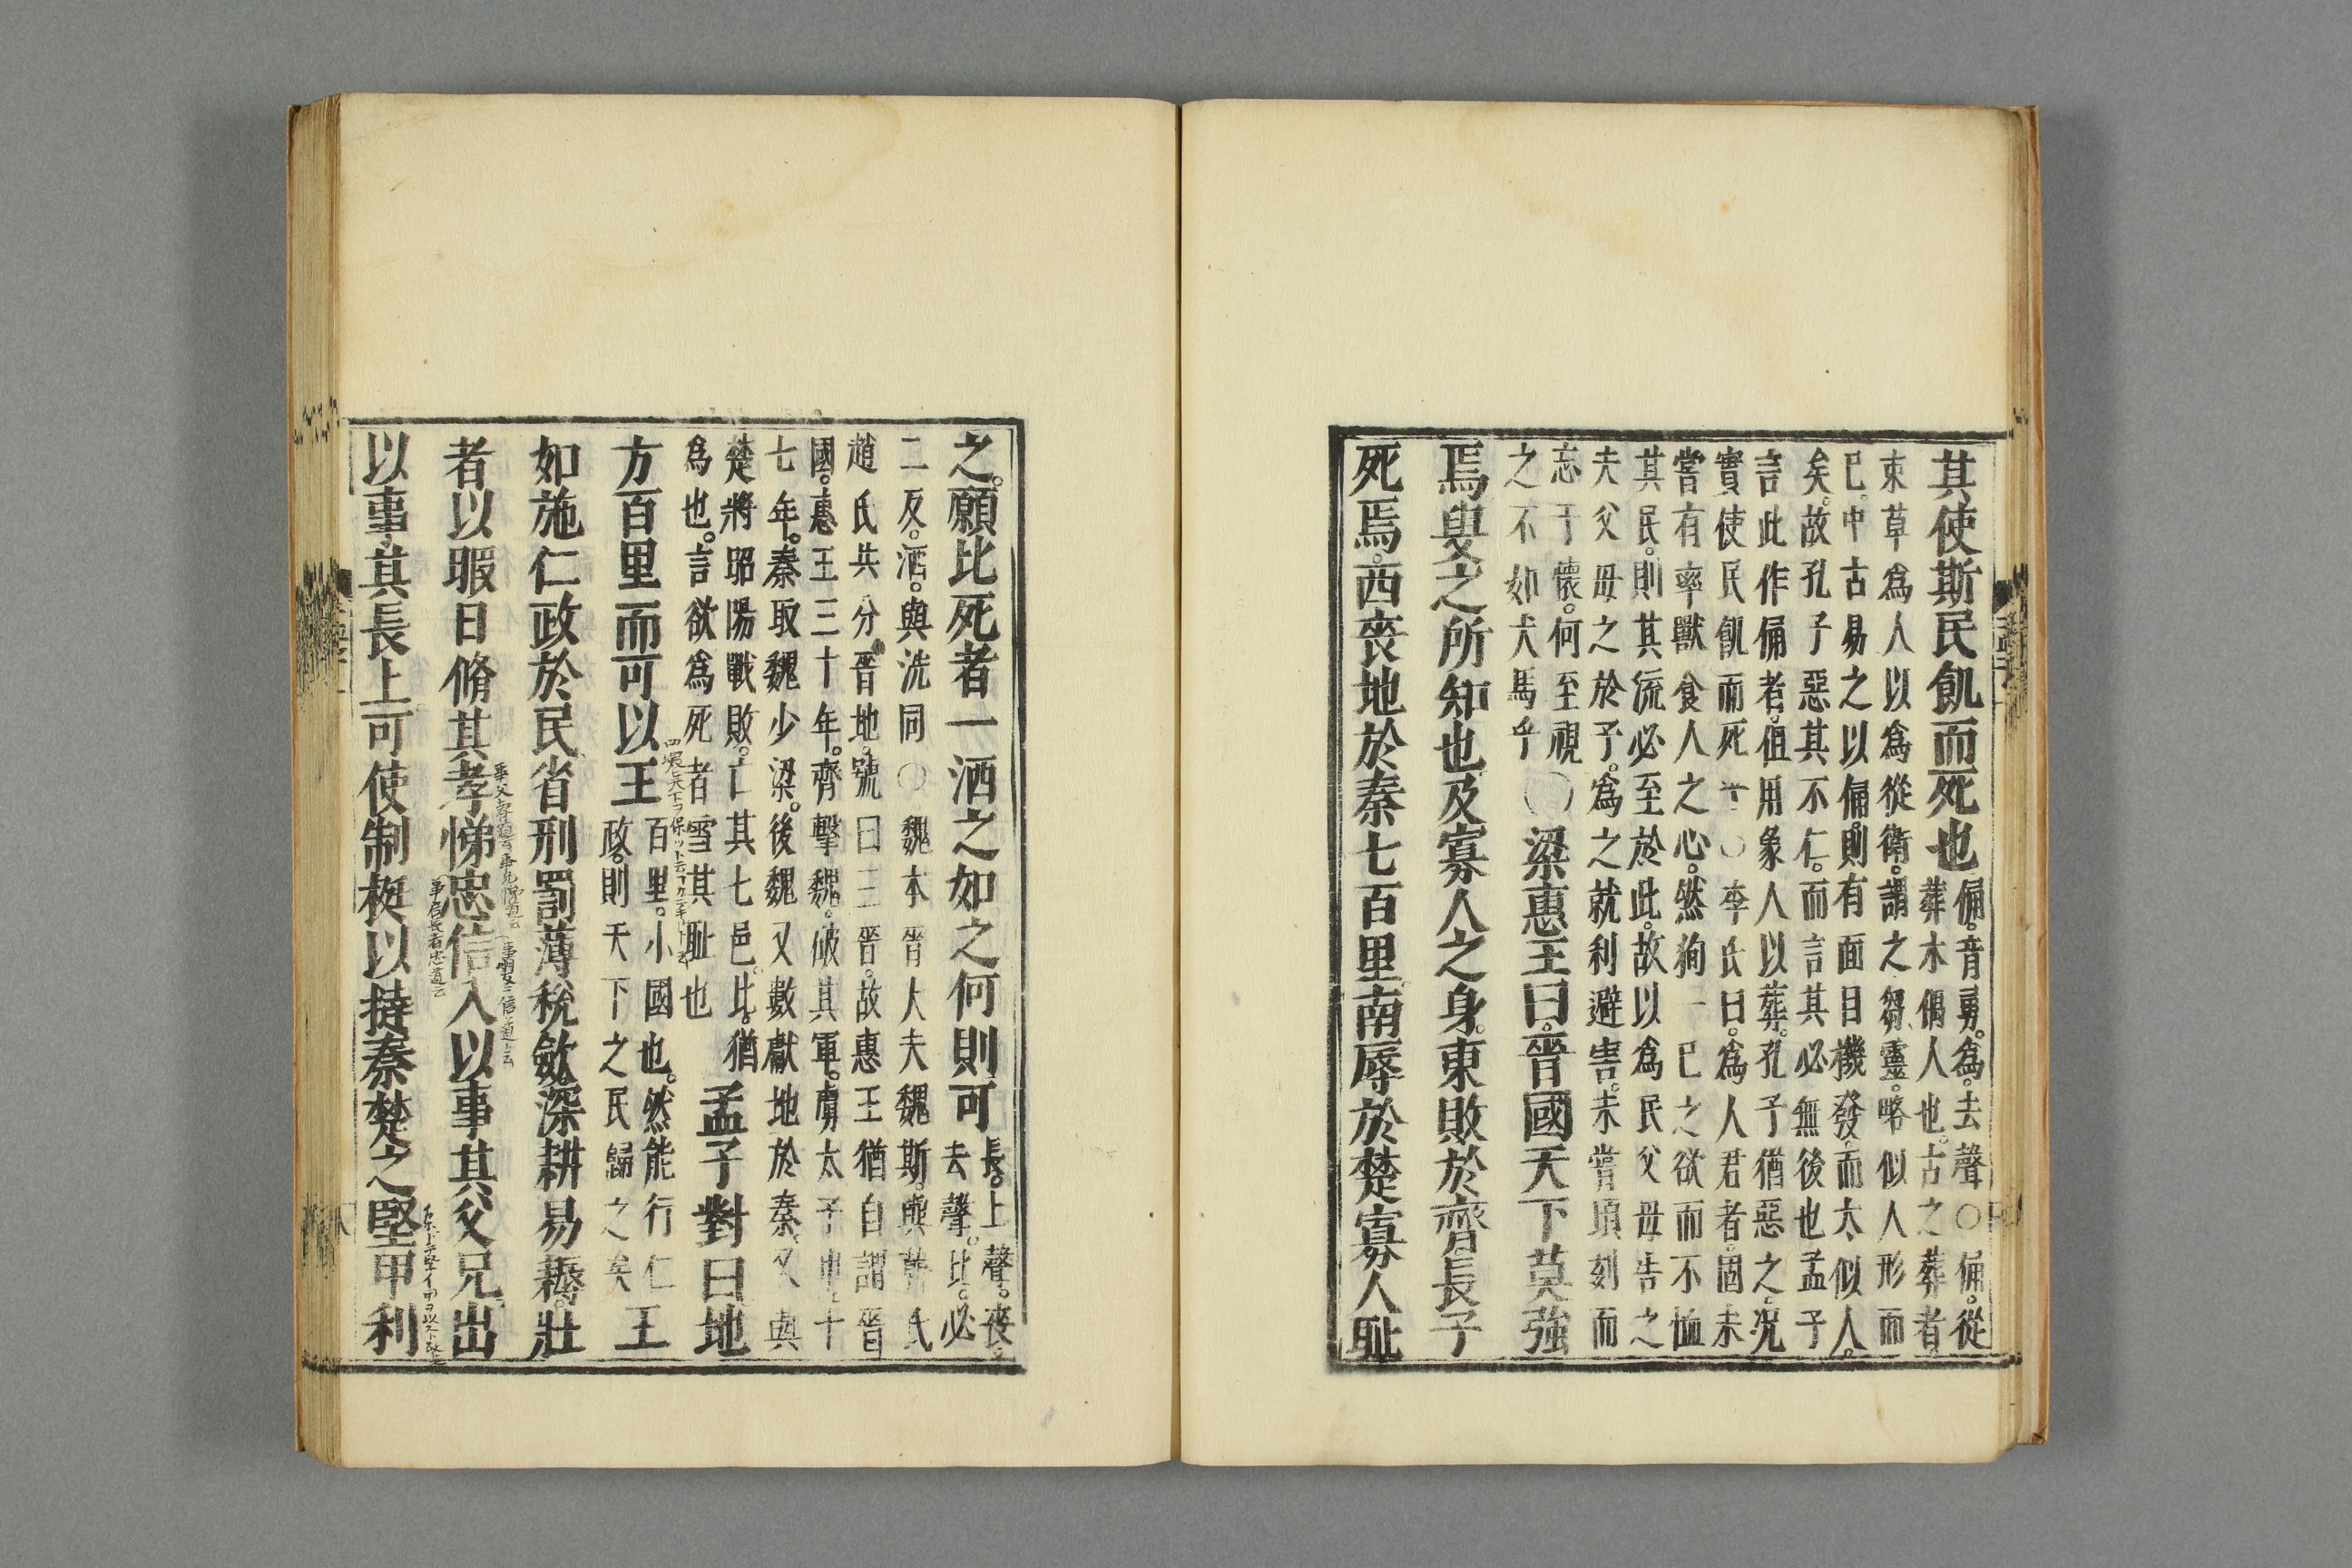 其使斯民飢而死也
俑。音勇。爲。去聲○俑。從
葬木偶人也。古之葬者
束草爲人以爲從衛。謂之芻靈。略似人形而
已。中古易之以俑。則有面目機發。而太似人。
矣。故孔子惡其不仁。而言其必無後也孟子
言此作俑者。但用象人以葬。孔子猶惡之。况
實使民飢而死 ○李氏曰。爲人君者。固未
嘗有率獸食人之心。然狥一己之欲而不恤
其民。則其流必至於此。故以爲民父母告之
夫父母之於子。爲之就利避害。未嘗頃刻而
忘于懷。何至視
之不如犬馬乎
○梁惠王曰。晉國天下莫強
焉叟之所知也及寡人之身。東敗於齊。長子
死焉。西喪地於秦七百里南辱於楚寡人恥
之。願比死者一洒之如之何則可
長。上聲。喪。
去聲。比。必
二反。洒。與洗同○魏本晉大夫魏斯。與韓氏
趙氏共分晉地。號曰三晉。故惠王猶自謂晉
國。惠王三十年。齊擊魏。破其軍。虜太子申。十
七年。秦取魏少梁。後魏又數獻地於秦。又與
楚將昭陽戰敗。亡其七邑。比。猶
爲也。言欲爲死者雪其恥也
孟子對曰地
方百里而可以王
百里。小國也。然能行仁
政。則天下之民歸之矣
王
如施仁政於民省刑罰薄稅斂深耕易耨。壯
者以暇日脩其孝悌忠信入以事其父兄出
以事其長上可使制梃以撻秦楚之堅甲利